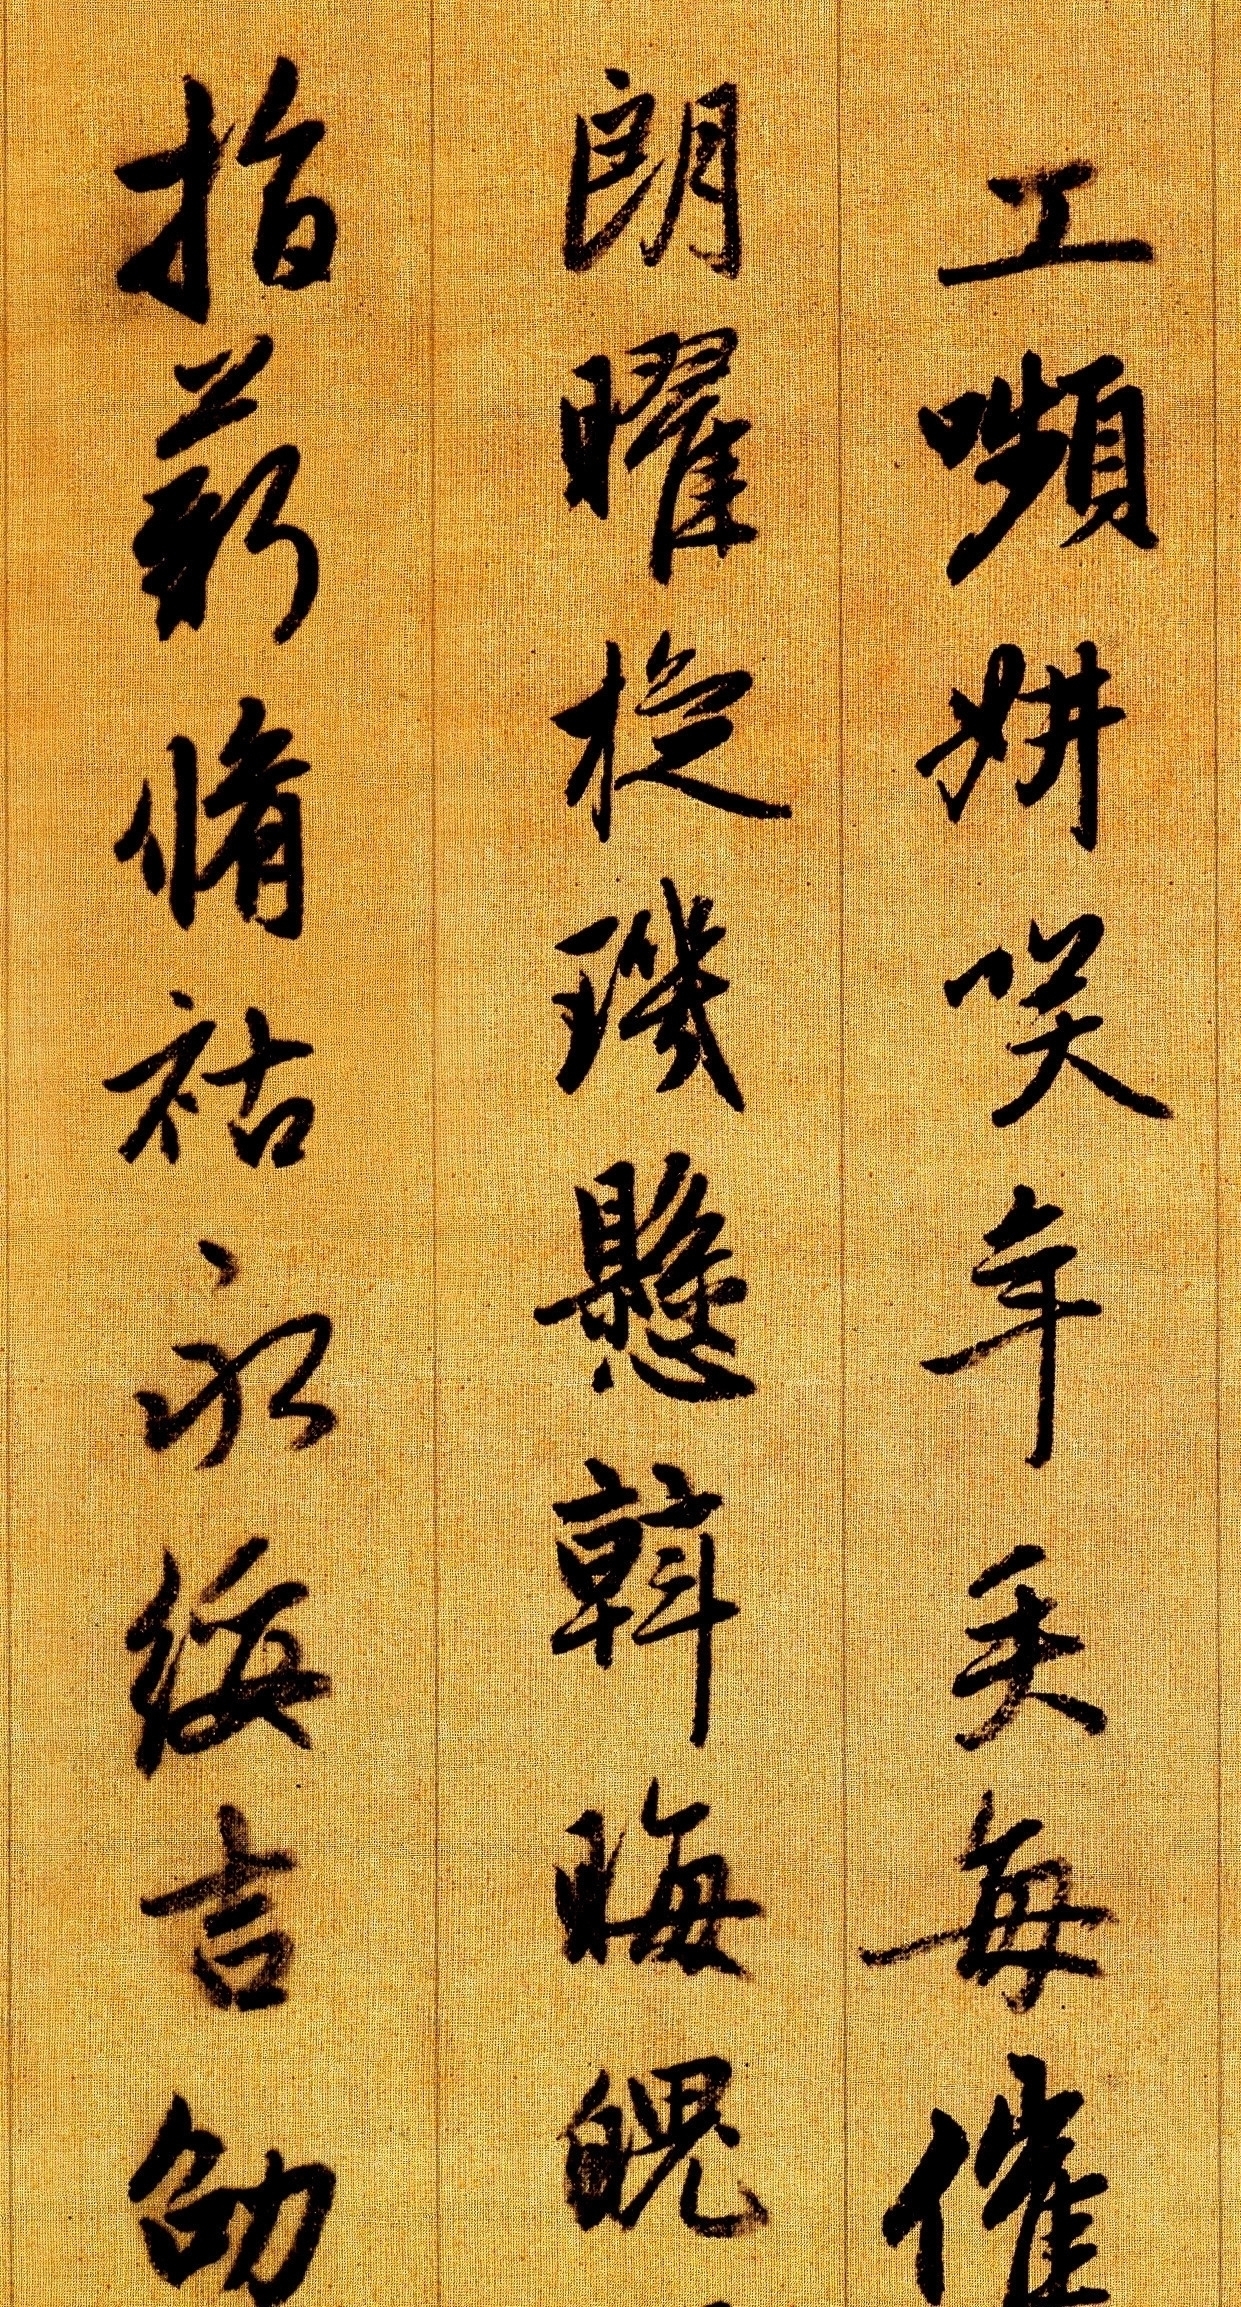 工嚬妍咲年矢每催
朗曜旋璣懸斡晦魄
指薪脩祜永綏吉劭